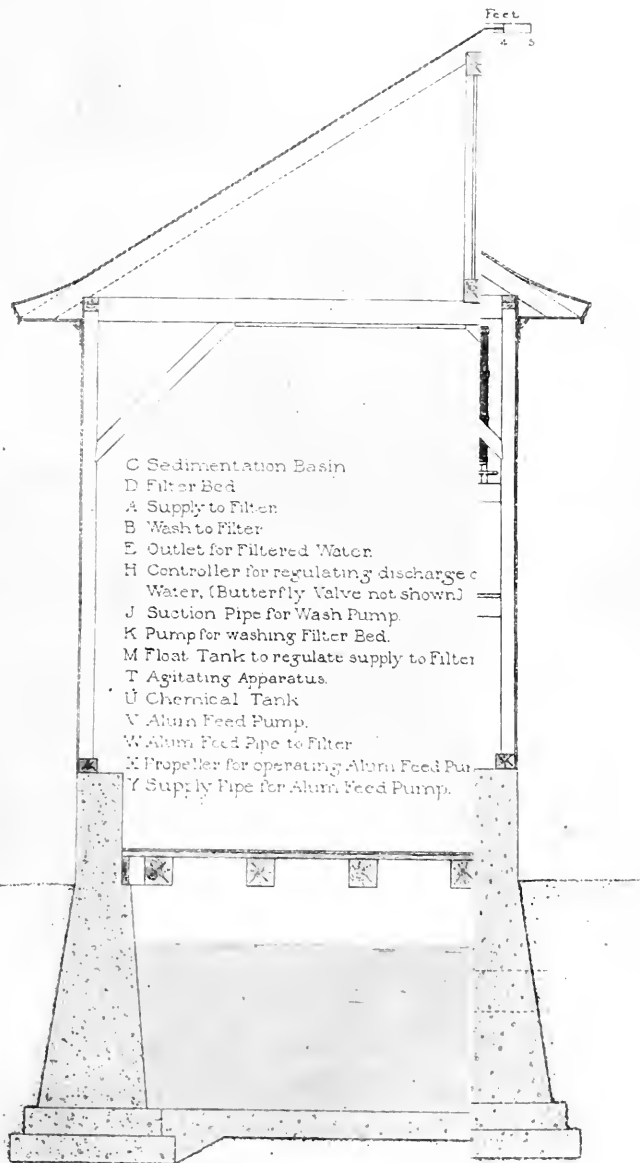 Feet
4 5
C Sedimentation Basin
D Filter Bed
A Supply to Filter.
B Wash to Filter
E Outlet for Filtered Water.
H Controller for regulating discharge
Water, (Butterfly Valve not shown)
J Suction Pipe for Wash Pump.
K Pump for washing Filter Bed.
M Float Tank to regulate supply to Filter
T Agitating Apparatus.
U Chemical Tank
V Alum Feed Pump.
W Alum Feed Pipe to Filter
X Propeller for operating Alum Feed
Y Supply Pipe for Alum Feed Pump.